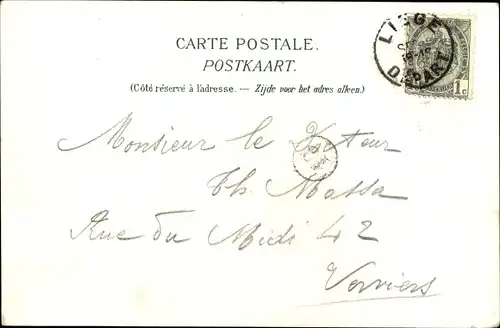 LIEGE
DEPART
1c
CARTE POSTALE.
POSTKAART.
(Côté réservé à l'adresse. — Zijde voor het adres alleen.)
Monsieur le
Th. Massa
Rue du Midi 42
Verviers